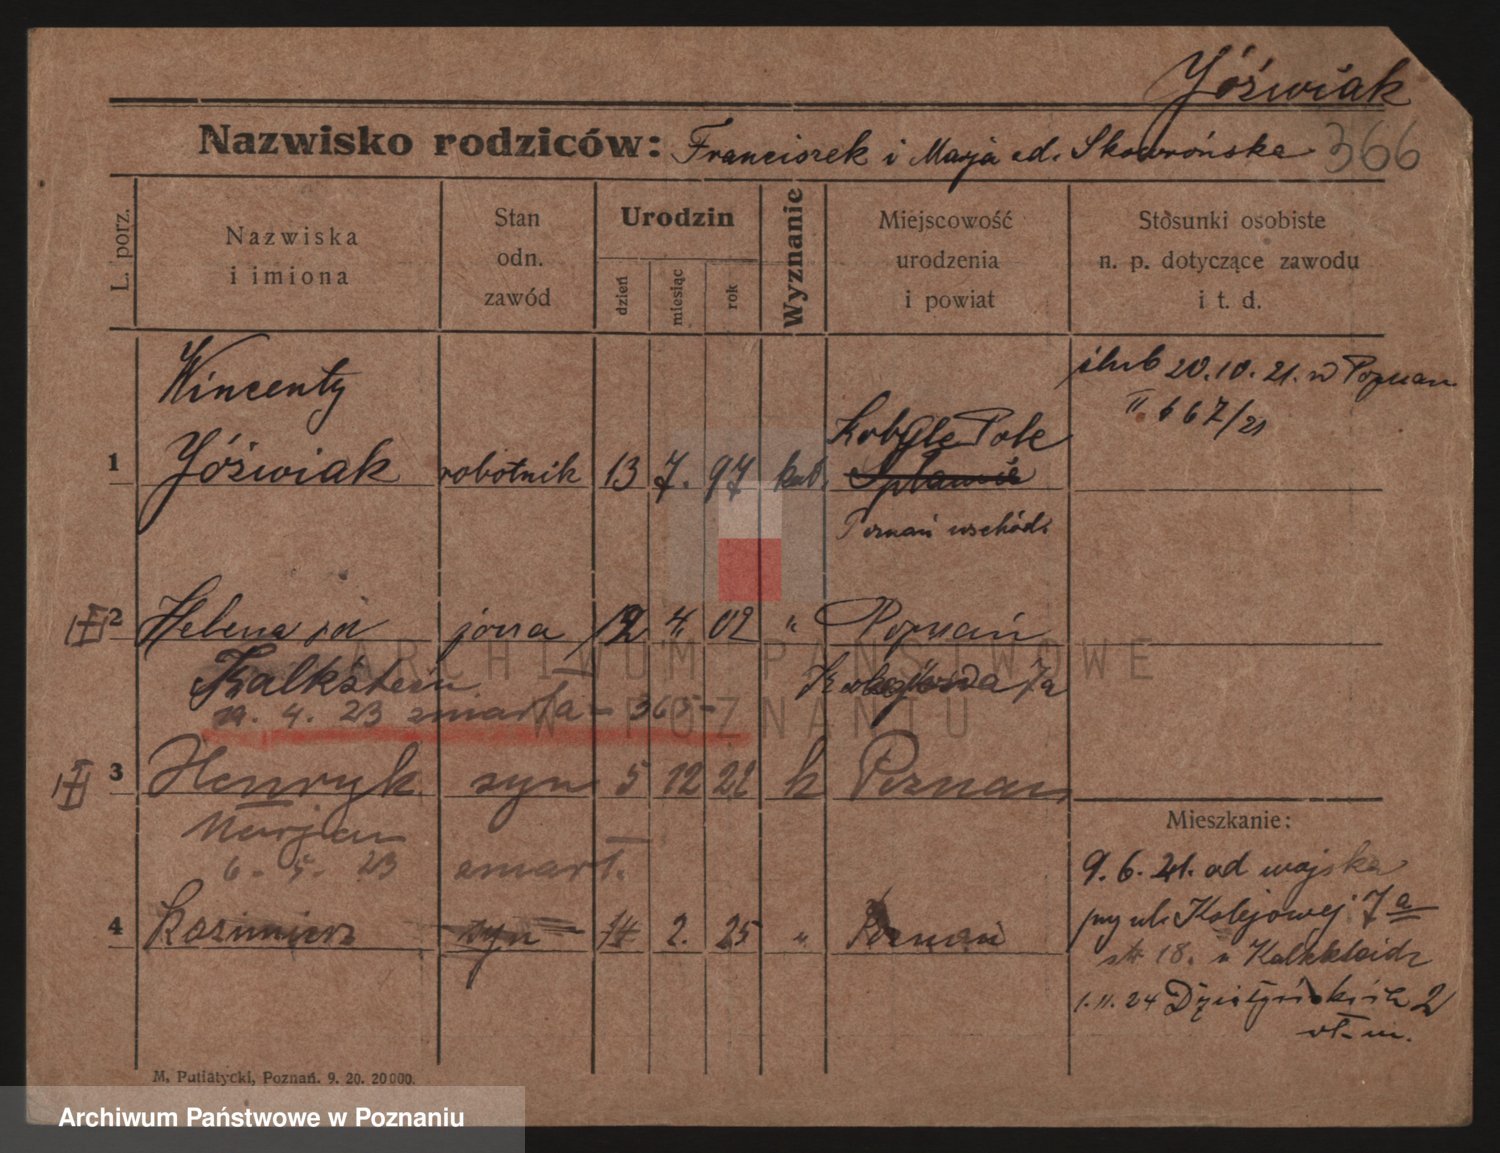 Jóźwiak
Nazwisko rodziców: Franciszek i Marja Skowrońska 366
L. porz.
Nazwiska
i imiona
Stan
odn.
zawód
Urodzin
dzień
miesiąc
rok
Wyznanie
Miejscowość
urodzenia
i powiat
Stosunki osobiste
n. p. dotyczące zawodu
i t. d.
ślub 20.10.21. w Poznan
II. 667/21
Wincenty
1 Jóźwiak robotnik 13 7. 97 kat. Kobyle Pole
Spławie
Poznań wschód.
2 Helena 12 4. 02 " Poznań
Kalkstein Kolejowa 7a
19. 4. 23 zmarła - 365 -
3 Henryk syn 5 12 22 k Poznan
Marjan
6. 5. 23 zmarł.
4 Kazimierz syn 14 2. 25 " Poznań
Mieszkanie:
9. 6. 21. od wojska
przy ul. Kolejowej 7a
18. u
1.11.24 Działyńskich 2
M. Putiatycki, Poznań. 9. 20. 20000.
ARCHIWUM PAŃSTWOWE
W POZNANIU
Archiwum Państwowe w Poznaniu